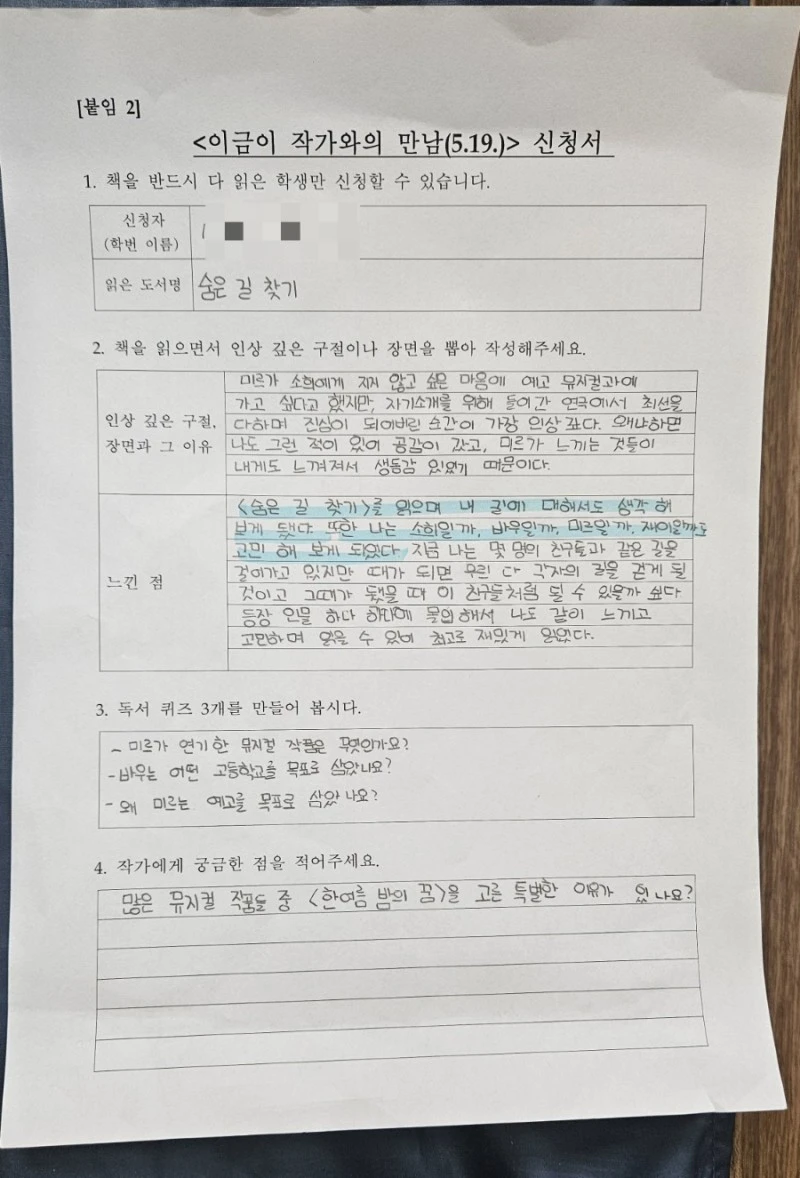 [붙임 2]
<이금이 작가와의 만남(5.19.)> 신청서
1. 책을 반드시 다 읽은 학생만 신청할 수 있습니다.
신청자
(학번 이름)
읽은 도서명 숨은 길 찾기
2. 책을 읽으면서 인상 깊은 구절이나 장면을 뽑아 작성해주세요.
인상 깊은 구절,
장면과 그 이유
미르가 소희에게 지지 않고 싶은 마음에 예고 뮤지컬과에
가고 싶다고 했지만, 자기소개를 위해 들어간 연극에서 최선을
다하며 진심이 되어버린 순간이 가장 인상 깊다. 왜냐하면
나도 그런 적이 있어 공감이 갔고, 미르가 느끼는 것들이
내게도 느껴져서 생동감 있었기 때문이다.
느낀 점
<숨은 길 찾기>를 읽으며 내 길에 대해서도 생각 해
보게 됐다. 또한 나는 소희일까, 바우일까, 미르일까, 재이일까도
고민 해 보게 되었다. 지금 나는 몇 명의 친구들과 같은 길을
걸어가고 있지만 때가 되면 우린 다 각자의 길을 걷게 될
것이고 그때가 됐을 때 이 친구들처럼 될 수 있을까 싶다
등장 인물 하나 하나에 몰입해서 나도 같이 느끼고
고민하며 읽을 수 있어 최고로 재밌게 읽었다.
3. 독서 퀴즈 3개를 만들어 봅시다.
- 미르가 연기한 뮤지컬 작품은 무엇인가요?
- 바우는 어떤 고등학교를 목표로 삼았나요?
- 왜 미르는 예고를 목표로 삼았나요?
4. 작가에게 궁금한 점을 적어주세요.
많은 뮤지컬 작품들 중 <한여름 밤의 꿈>을 고른 특별한 이유가 있나요?